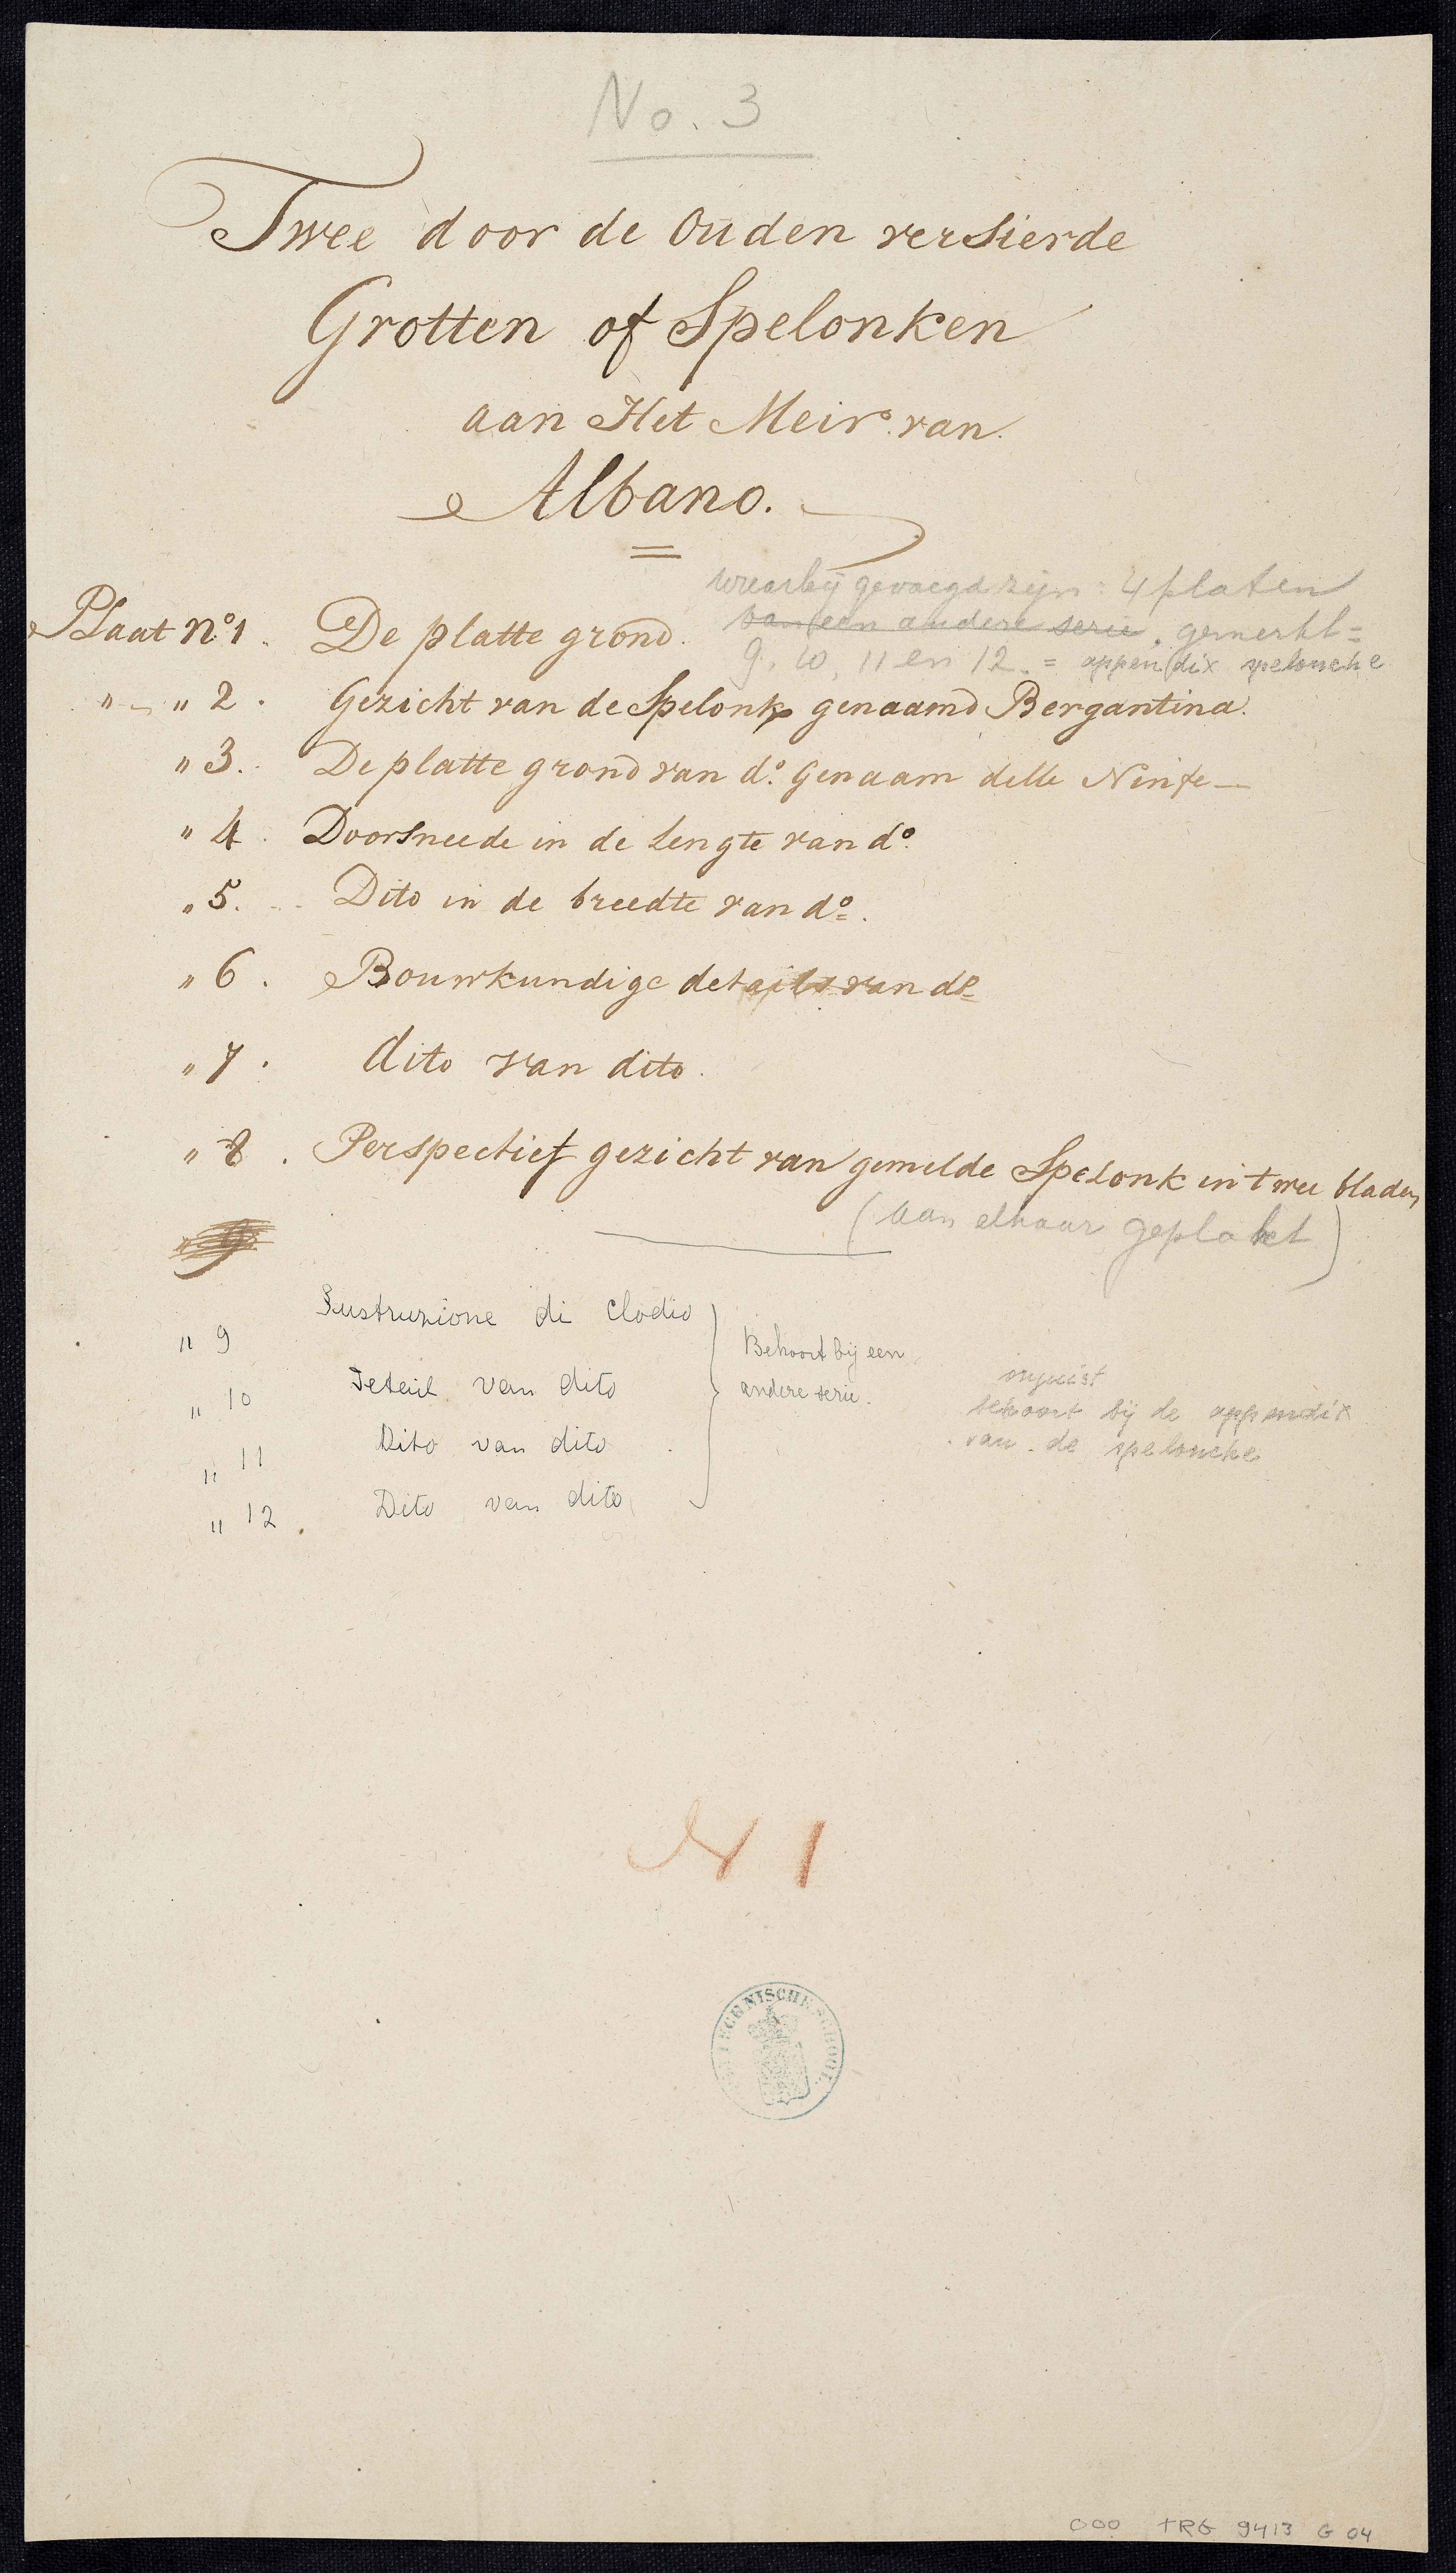 No. 3
Twee door de Ouden versierde
Grotten of Spelonken
aan Het Meir van
Albano.
waarbij gevoegd zijn: 4 platen
van een andere serie. gemerkt =
9, 10, 11 en 12. = appendix spelonche
Plaat No 1. De platte grond.
" " 2. Gezicht van de Spelonk genaamd Bergantina.
" 3. De platte grond van do. Genaam delle Ninfe —
" 4. Doorsneede in de Lengte van do.
" 5. Dito in de breedte van do.
" 6. Bouwkundige details van do
" 7. dito van dito.
" 8. Perspectief gezicht van gemelde Spelonk in twee bladen
(aan elkaar geplakt)
" 9
" 9 Sustruzione di Clodio
" 10 Detail van dito
" 11 Dito van dito
" 12. Dito van dito
Behoort bij een
andere serie.
onjuist
behoort bij de appendix
van de spelonche
N 1
TECHNISCHE SCHOOL
000 TRG 9413 G 04